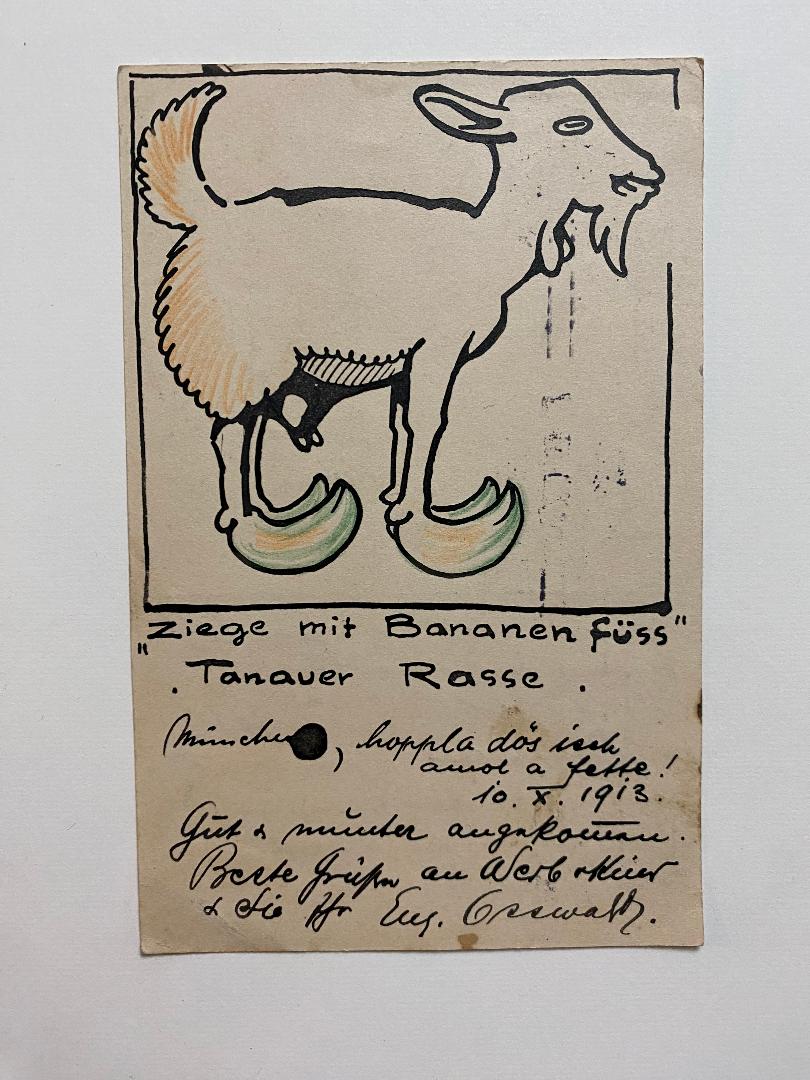 „Ziege mit Bananen füss"
. Tanauer Rasse .
München, hoppla dös isch
amol a fette!
10. X. 1913.
Gut & munter angekommen.
Beste Grüße an Weib & Kind
& Sie Ihr Eug. Osswald.